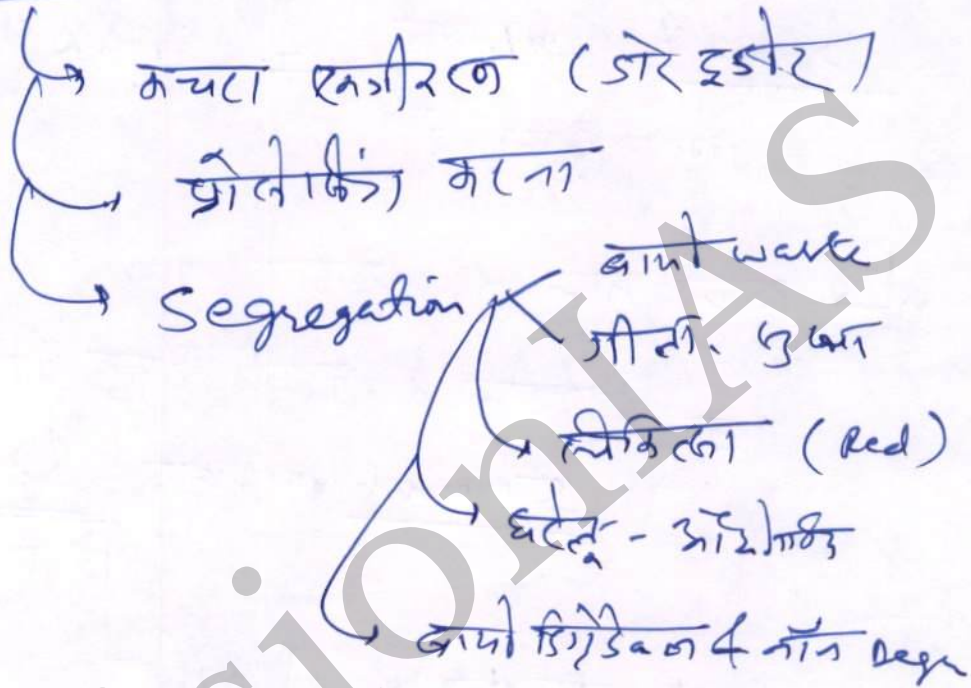 कचरा एकत्रीकरण (डोर टू डोर)
करना
Segregation
बायो waste
गीला सूखा
चिकित्सा (Red)
घरेलू - औद्योगिक
बायो डिग्रेडेबल & नॉन Degr